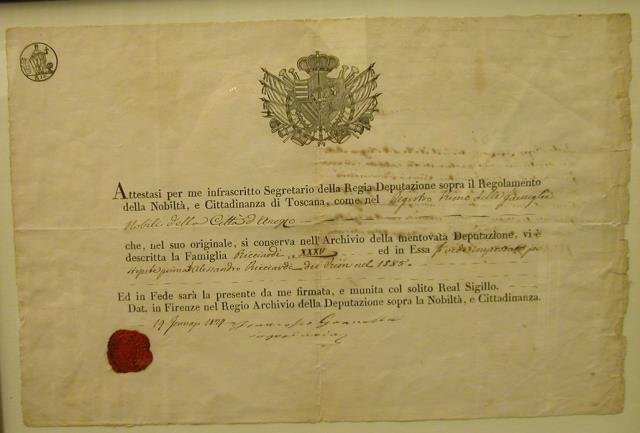 Attestasi per me infrascritto Segretario della Regia Deputazione sopra il Regolamento
della Nobiltà, e Cittadinanza di Toscana, come nel Registro Primo delle Famiglie
Nobili della Città d'Arezzo
che, nel suo originale, si conserva nell'Archivio della mentovata Deputazione, vi è
descritta la Famiglia Ricciardi XXXV ed in Essa
Alessandro Ricciardi nel
Ed in Fede sarà la presente da me firmata, e munita col solito Real Sigillo.
Dat. in Firenze nel Regio Archivio della Deputazione sopra la Nobiltà, e Cittadinanza.
19